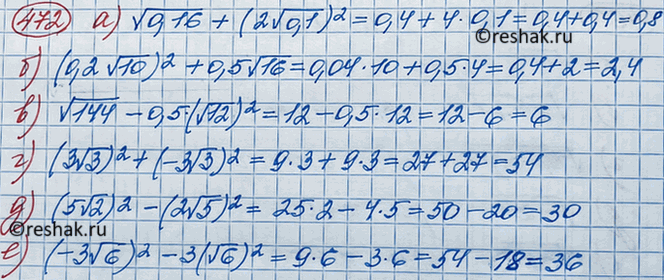 472 а) √0,16 + (2√0,1)² = 0,4 + 4 · 0,1 = 0,4 + 0,4 = 0,8
б) (0,2√10)² + 0,5√16 = 0,04 · 10 + 0,5 · 4 = 0,4 + 2 = 2,4
в) √144 − 0,5 · (√12)² = 12 − 0,5 · 12 = 12 − 6 = 6
г) (3√3)² + (−3√3)² = 9 · 3 + 9 · 3 = 27 + 27 = 54
д) (5√2)² − (2√5)² = 25 · 2 − 4 · 5 = 50 − 20 = 30
е) (−3√6)² − 3(√6)² = 9 · 6 − 3 · 6 = 54 − 18 = 36